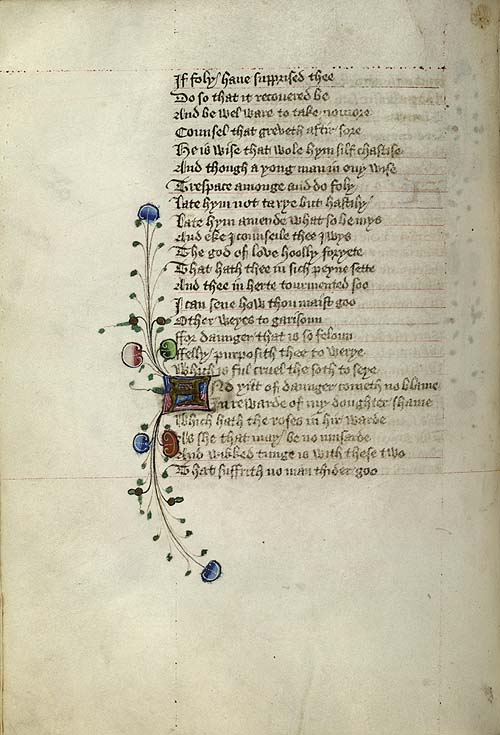 If foly haue supprised thee
Do so that it recouered be
And be wel ware to take nomore
Counsel that greveth aftir sore
He is wise that wole hym silf chastise
And though a yong man in ony wise
Trespace amonge and do foly
Late hym not tarye but hastily
Late hym amende what so be mys
And eke I counseile thee Iwys
The god of love hoolly foryete
That hath thee in sich peyne sette
And thee in herte tourmented soo
I can sene how thou maist goo
Other weyes to garisoun
ffor daunger that is so feloun
ffelly purposith thee to werye
Which is ful cruel the soth to seye
And yitt of daunger cometh no blame
In rewarde of my doughter shame
Which hath the roses in hir warde
As she that may be no musarde
And wikked tunge is with these two
That suffrith no man thider goo